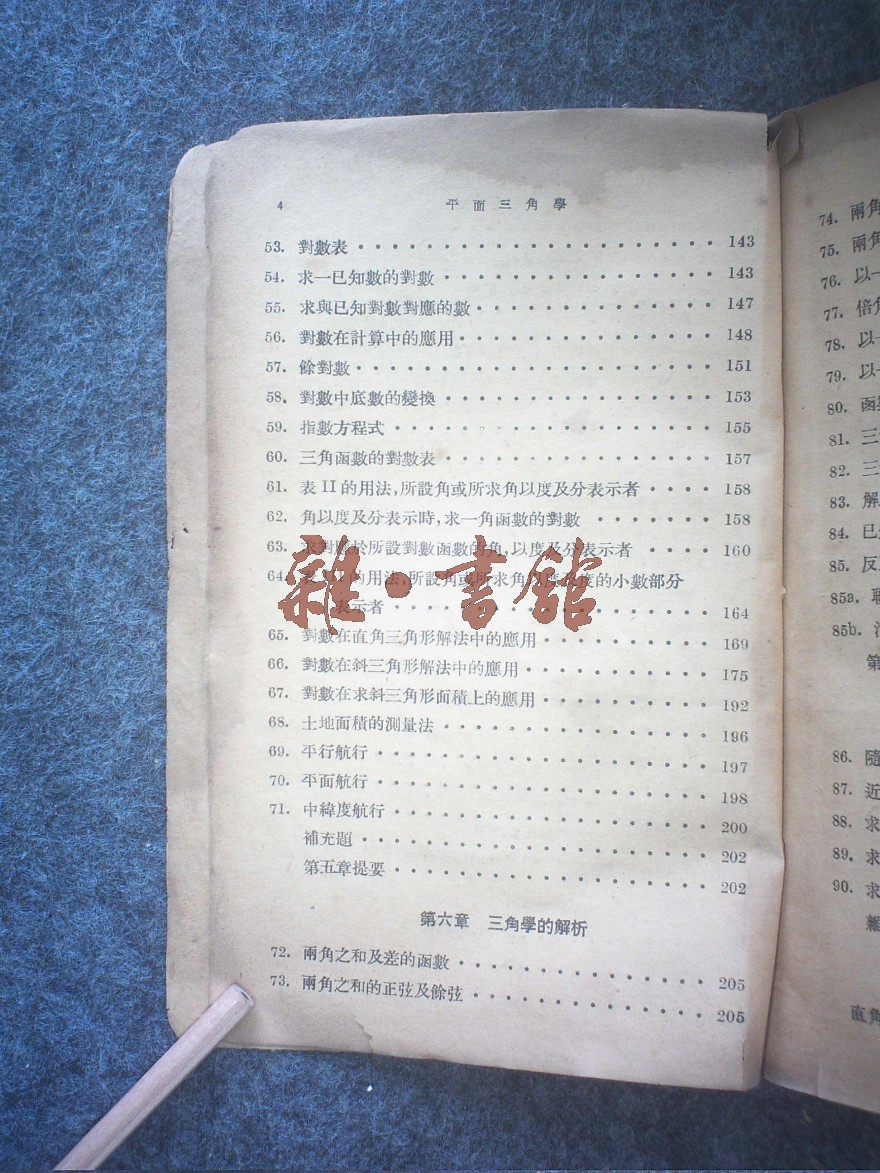 4 平面三角學
53. 對數表 143
54. 求一已知數的對數 143
55. 求與已知對數對應的數 147
56. 對數在計算中的應用 148
57. 餘對數 151
58. 對數中底數的變換 153
59. 指數方程式 155
60. 三角函數的對數表 157
61. 表 II 的用法,所設角或所求角以度及分表示者 158
62. 角以度及分表示時,求一角函數的對數 158
63. 求對應於所設對數函數的角,以度及分表示者 160
64. 的用法,所設角或所求角以度及度的小數部分
表示者 164
65. 對數在直角三角形解法中的應用 169
66. 對數在斜三角形解法中的應用 175
67. 對數在求斜三角形面積上的應用 192
68. 土地面積的測量法 196
69. 平行航行 197
70. 平面航行 198
71. 中緯度航行 200
補充題 202
第五章提要 202
第六章 三角學的解析
72. 兩角之和及差的函數 205
73. 兩角之和的正弦及餘弦 205
雜·書館
74. 兩角
75. 兩角
76. 以一
77. 倍角
78. 以一
79. 以一
80. 函
81. 三
82. 三
83. 解
84. 已
85. 反
85a. 聯
85b.
第
86. 隨
87. 近
88. 求
89. 求
90. 求
雜
直角